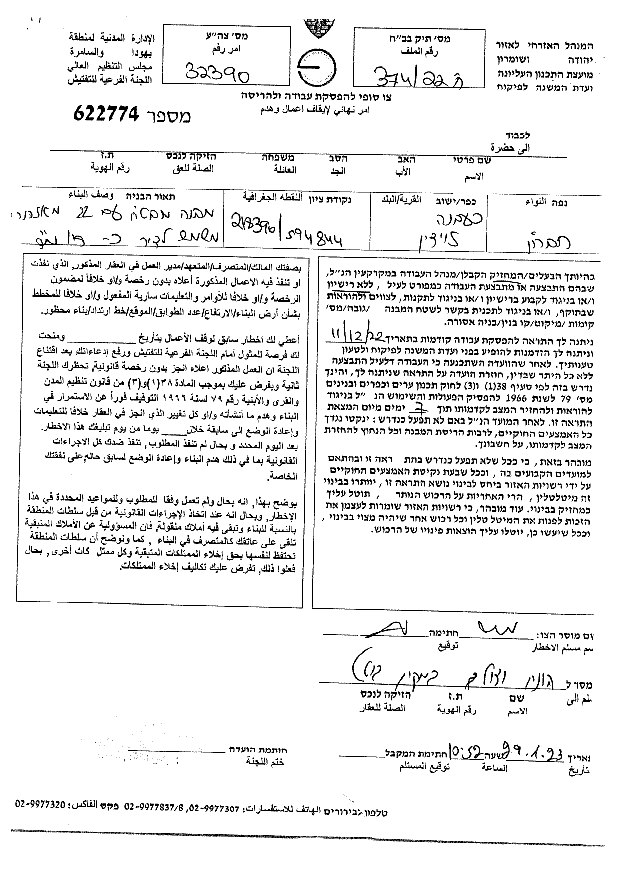 המנהל האזרחי לאזור
יהודה ושומרון
מועצת התכנון העליונה
ועדת המשנה לפיקוח
מס׳ תיק בב״ח
رقم الملف
ק 374/22
מס׳ צה״ע
امر رقم
32390
الإدارة المدنية لمنطقة
يهودا والسامرة
مجلس التنظيم العالي
اللجنة الفرعية للتفتيش
צו סופי להפסקת עבודה ולהריסה
امر نهائي لإيقاف اعمال وهدم
מספר 622774
לכבוד
الى حضرة
שם פרטי האב הסב משפחה הזיקה לנכס ת.ז
الاسم الأب الجد العائلة الصلة للعق رقم الهوية
נפה اللواء
כפר/ישוב القرية/البلد
נקודת ציון النقطة الجغرافية
תאור הבניה وصف البناء
חברון
218390/594844
בהיותך הבעלים/המחזיק הקבלן/מנהל העבודה במקרקעין הנ״ל,
שבהם התבצעה או מתבצעת העבודה כמפורט לעיל, ללא רישיון
ו/או בניגוד לקבוע ברישיון ו/או בניגוד לתקנות, לצווים ולהוראות
שבתוקף, ו/או בניגוד לתכנית בקשר לשטח המבנה /גובה/מס׳
קומות /מיקום/קו בנין/בניה אסורה.
ניתנה לך התראה להפסקת עבודה קודמת בתאריך 11/12/22
וניתנה לך הזדמנות להופיע בפני ועדת המשנה לפיקוח ולטעון
טענותיך. לאחר שהוועדה השתכנעה כי העבודה דלעיל התבצעה
ללא כל היתר שבדין, חוזרת הוועדה על התראה שניתנה לך, והינך
נדרש בזה לפי סעיף 38(1) ו(3) לחוק תכנון ערים וכפרים ובניינים
מס׳ 79 לשנת 1966 להפסיק הפעולות והשימוש הנ״ל בניגוד
להוראות ולהחזיר המצב לקדמותו תוך 7 ימים מיום המצאת
התראה זו. לאחר המועד הנ״ל באם לא תפעל כנדרש: ינקטו נגדך
כל האמצעים החוקיים, לרבות הריסת המבנה וכל הנחוץ להחזרת
המצב לקדמותו, על חשבונך.
מובהר בזאת, כי ככל שלא תפעל כנדרש בהתראה זו ובהתאם
למועדים הקבועים בה, וככל שבעת נקיטת האמצעים החוקיים
על ידי רשויות האזור ביחס לבינוי נושא התראה זו, יוותרו בבינוי
זה מיטלטלין, הרי האחריות על הרכוש הנותר, תוטל עליך
כמחזיק בבינוי. עוד מובהר, כי רשויות האזור שומרות לעצמן את
הזכות לפנות את המיטלטלין וכל רכוש אחר שיהיה מצוי בבינוי,
וככל שיעשו כן, יוטלו עליך הוצאות פינויו של הרכוש.
بصفتك المالك/المتصرف/المتعهد/مدير العمل في العقار المذكور, الذي نفذت
او تنفذ فيه الاعمال المذكورة أعلاه بدون رخصة و/او خلافاً لمضمون
الرخصة و/او خلافا للأوامر والتعليمات سارية المفعول و/او خلافا للمخطط
بشأن أرض البناء/الارتفاع/عدد الطوابق/الموقع/خط ارتداد/بناء محظور.
أعطي لك اخطار سابق لوقف الأعمال بتاريخ ومنحت
لك فرصة للمثول أمام اللجنة الفرعية للتفتيش ورفع إدعاءاتك. بعد اقتناع
اللجنة ان العمل المذكور اعلاه انجز بدون رخصة قانونية, تحظرك اللجنة
ثانية ويفرض عليك بموجب المادة ٣٨(١) و(٣) من قانون تنظيم المدن
والقرى والأبنية رقم ٧٩ لسنة ١٩٦٦ التوقيف فوراً عن الاستمرار في
البناء وهدم ما أنشأته و/او كل تغيير الذي جز في العقار خلافا للتعليمات
وإعادة الوضع الى سابقة خلال يوما من يوم تبليغك هذا الاخطار.
بعد اليوم المحدد و بحال لم تنفذ المطلوب, تنفذ ضدك كل الاجراءات
القانونية بما في ذلك هدم البناء وإعادة الوضع لسابق حالتم على نفقتك
الخاصة.
يوضح بهذا, انه بحال ولم تعمل وفقا للمطلوب وللمواعيد المحددة في هذا
الإخطار, وبحال انه عند اتخاذ الإجراءات القانونية من قبل سلطات المنطقة
بالنسبة للبناء وتبقى فيه أملاك منقولة, فان المسؤولية عن الأملاك المتبقية
تلقى على عاتقك كالمتصرف في البناء, كما ونوضح أن سلطات المنطقة
تحتفظ لنفسها بحق إخلاء الممتلكات المتبقية وكل ممتلكات أخرى, بحال
فعلوا ذلك, تفرض عليك تكاليف إخلاء الممتلكات.
ום מוסר הצו: חתימה
سم مسلم الاخطار توقيع
מסר ל
لم الى
שם ת.ז הזיקה לנכס
الاسم رقم الهوية الصلة للعقار
תאריך 29.1.23 שעה 10:52 חתימת המקבל
تاريخ الساعة توقيع المستلم
חותמת הועדה
ختم اللجنة
טלפון לבירורים الهاتف للاستفسارات: 02-9977307, 02-9977837/8 פקס الفاكس: 02-9977320